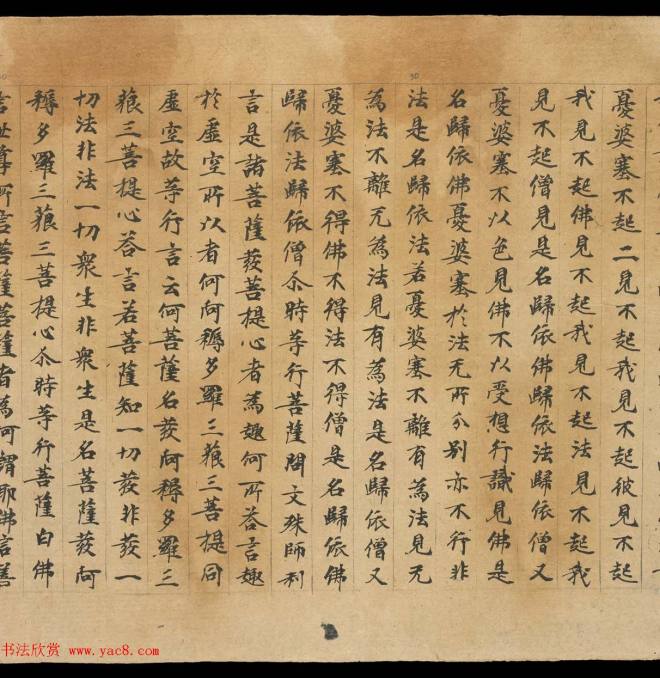 憂婆塞不起二見不起我見不起彼見不起
我見不起佛見不起我見不起法見不起我
見不起僧見是名歸依佛歸依法歸依僧又
憂婆塞不以色見佛不以受想行識見佛是
名歸依佛憂婆塞於法无所分別亦不行非
法是名歸依法若憂婆塞不離有為法見无
為法不離无為法見有為法是名歸依僧又
憂婆塞不得佛不得法不得僧是名歸依佛
歸依法歸依僧尒時等行菩薩問文殊師利
言是諸菩薩發菩提心者為趣何所荅言趣
於虛空所以者何阿耨多羅三藐三菩提同
虛空故等行言云何菩薩名發阿耨多羅三
藐三菩提心荅言若菩薩知一切發非發一
切法非法一切衆生非衆生是名菩薩發阿
耨多羅三藐三菩提心尒時等行菩薩白佛
言世尊所言菩薩菩薩者為何謂耶佛言善
书法欣赏 www.yac8.com